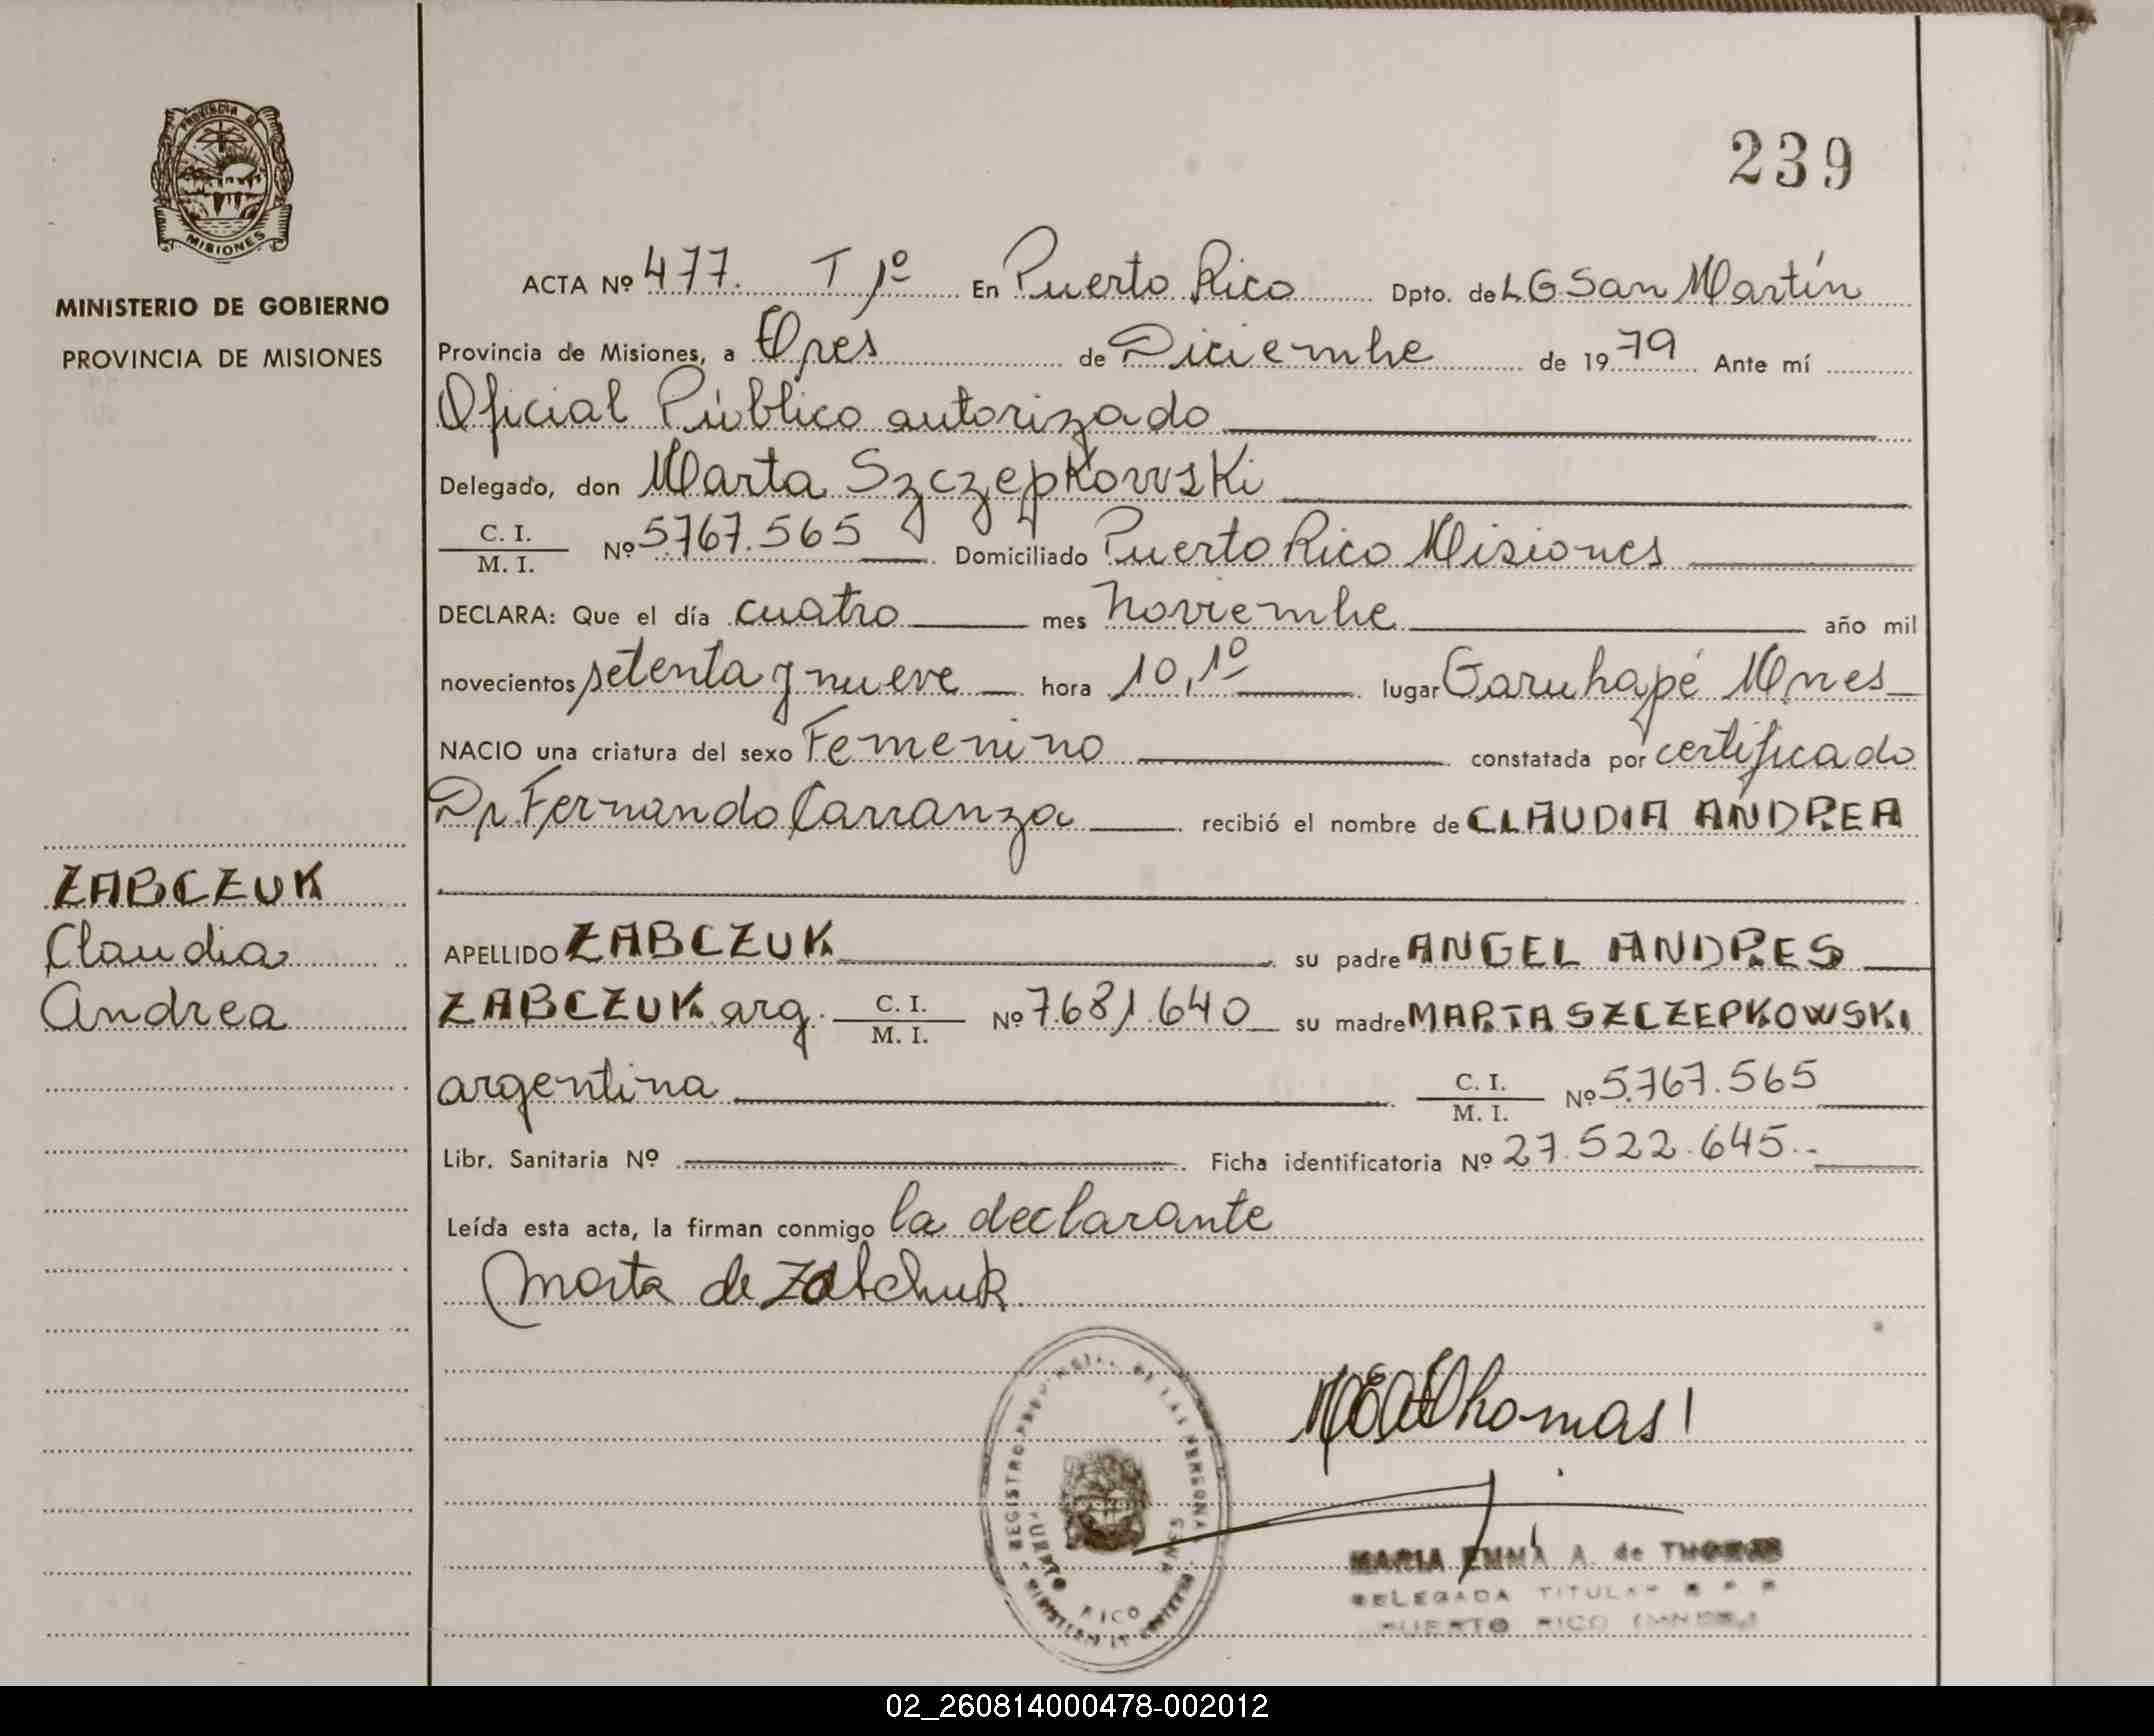 PROVINCIA DE
MISIONES
MINISTERIO DE GOBIERNO
PROVINCIA DE MISIONES
ZABCZUK
Claudia
Andrea
239
ACTA Nº 477. T 1º En Puerto Rico Dpto. de L G San Martín
Provincia de Misiones, a Tres de Diciembre de 1979 Ante mí
Oficial Público autorizado
Delegado, don Marta Szczepkowski
C. I.
M. I. Nº 5.767.565 Domiciliado Puerto Rico Misiones
DECLARA: Que el día cuatro mes noviembre año mil
novecientos setenta y nueve hora 10,1º lugar Garuhapé Mnes
NACIO una criatura del sexo Femenino constatada por certificado
Dr. Fernando Carranza recibió el nombre de CLAUDIA ANDREA
APELLIDO ZABCZUK su padre ANGEL ANDRES
ZABCZUK arg. C. I.
M. I. Nº 7.681.640 su madre MARTA SZCZEPKOWSKI
argentina C. I.
M. I. Nº 5.767.565
Libr. Sanitaria Nº Ficha identificatoria Nº 27.522.645.-
Leída esta acta, la firman conmigo la declarante
Marta de Zabchuk
Thomas
REGISTRO PROVINCIAL DE LAS PERSONAS
PUERTO RICO
MISIONES
MINISTERIO DE GOBIERNO
MARIA EMMA A. de THOMAS
DELEGADA TITULAR R P P
PUERTO RICO (MNES.)
02_260814000478-002012